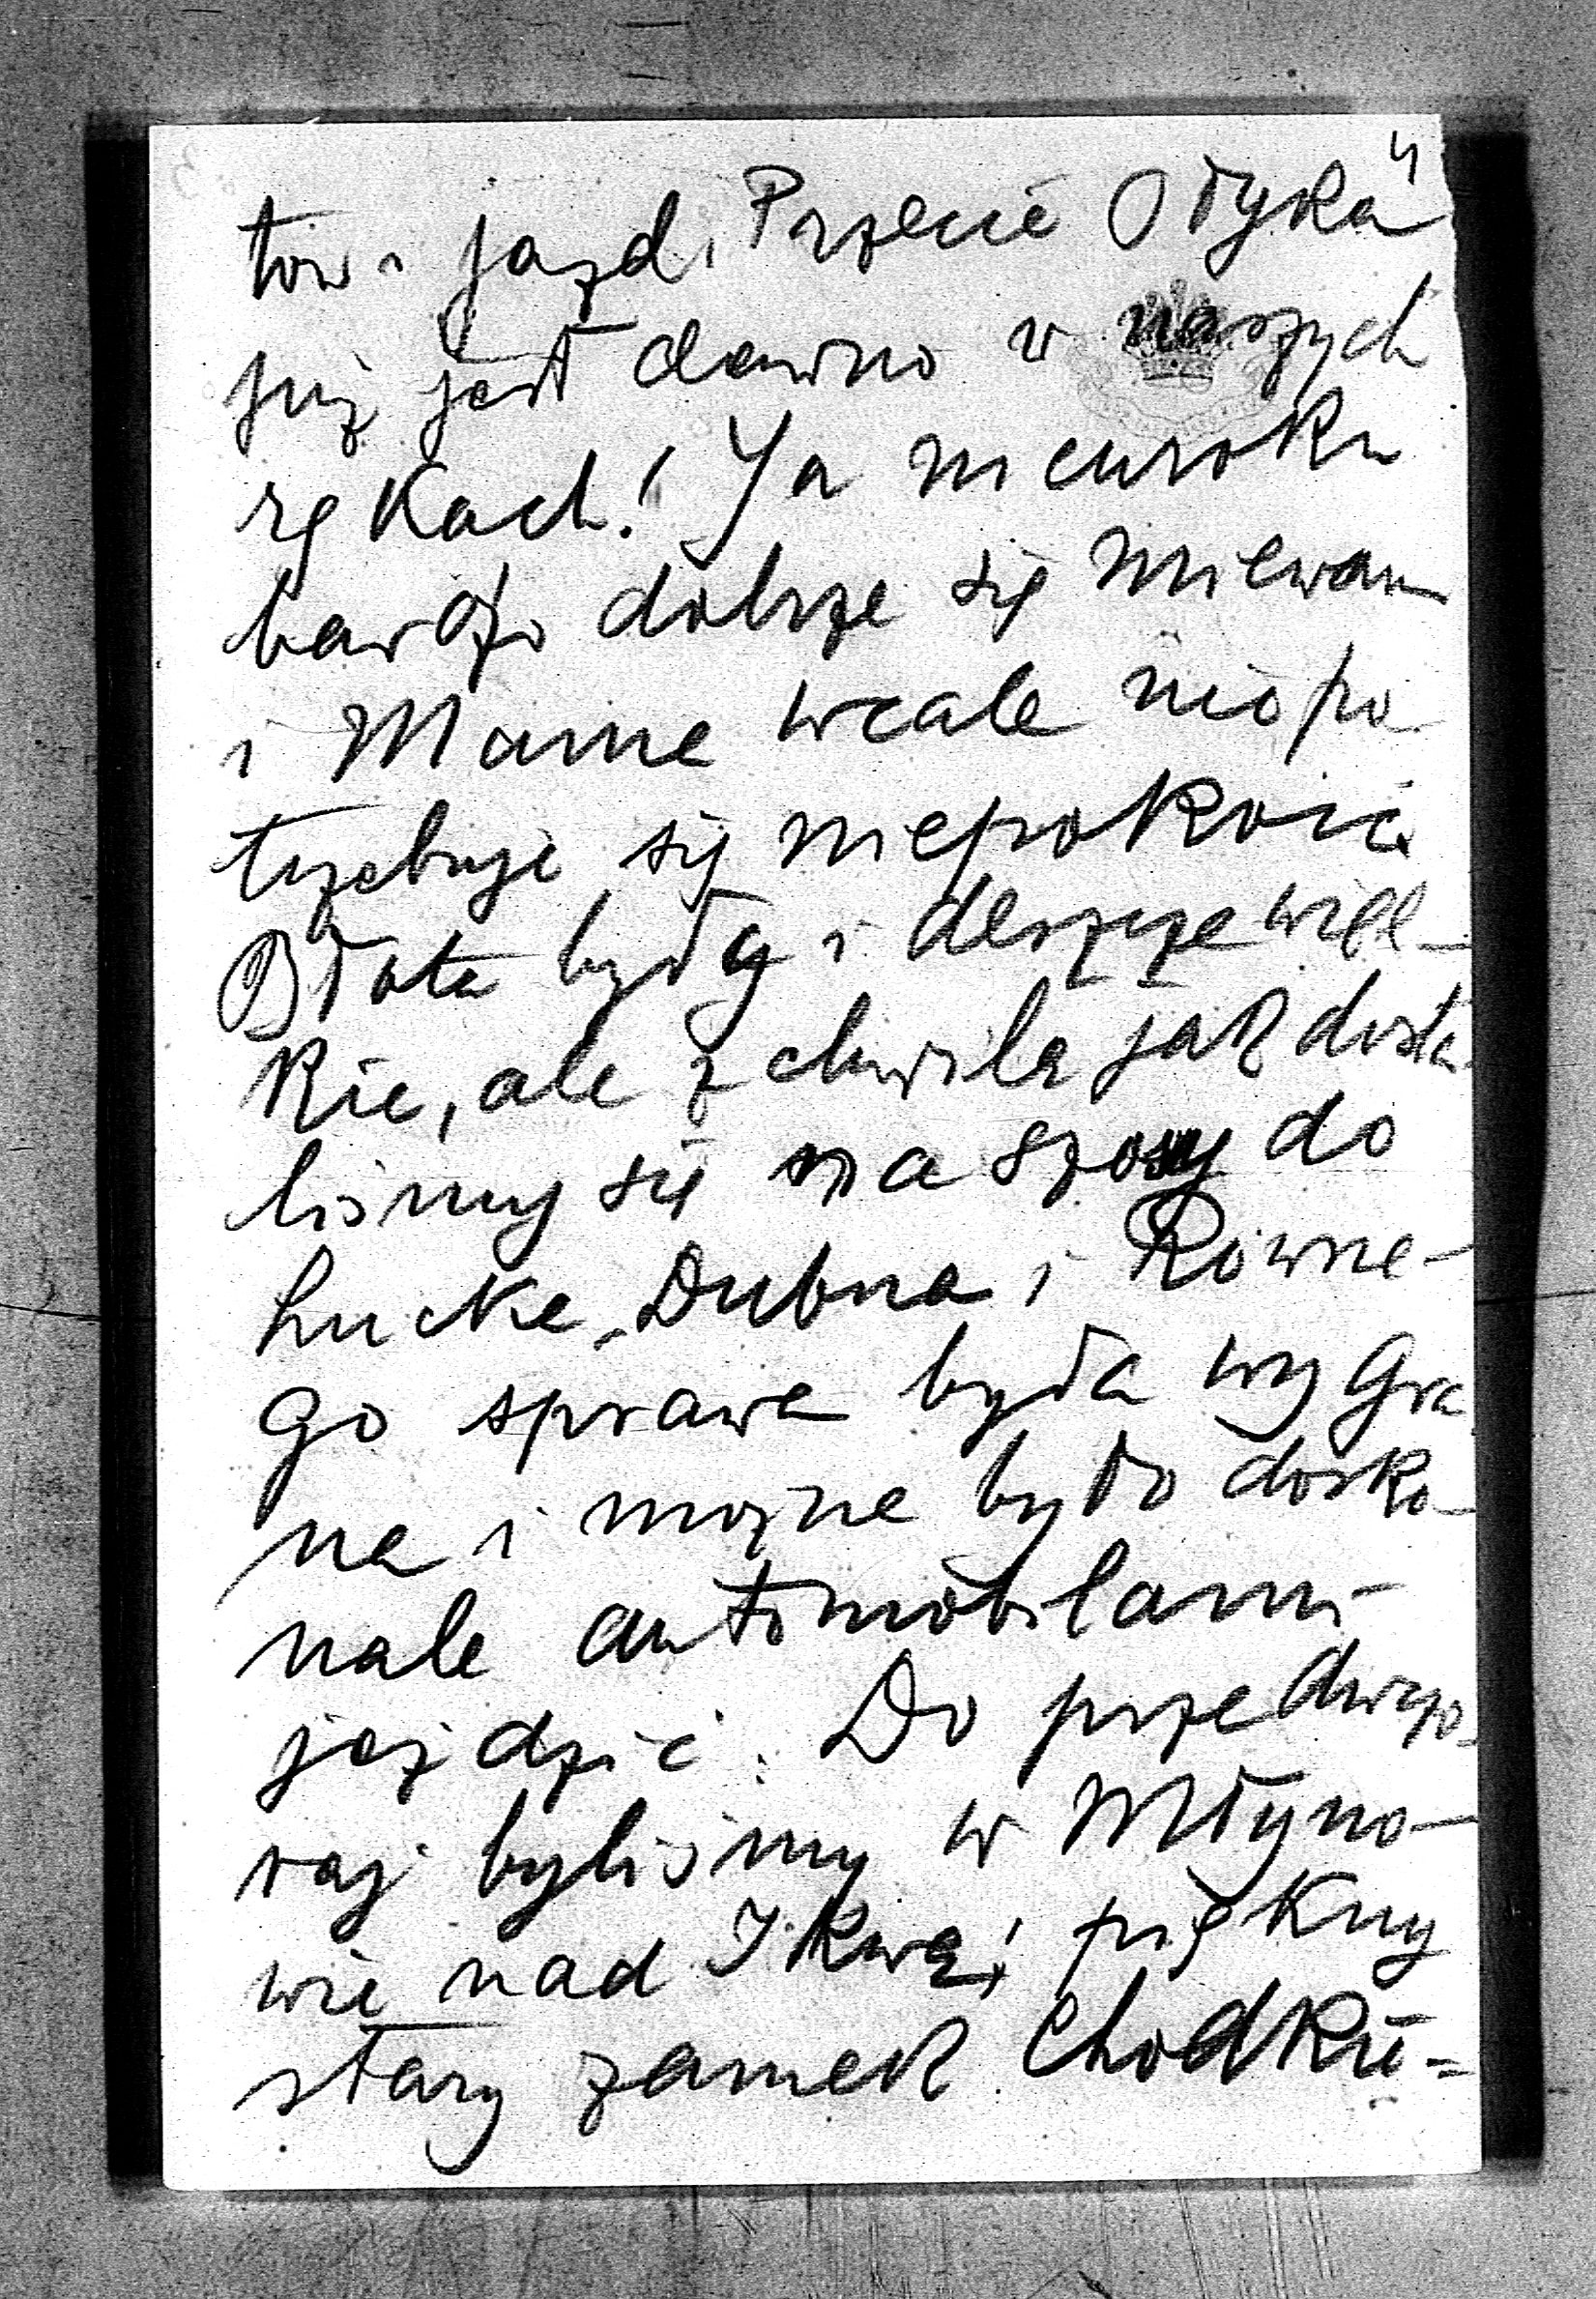 4
tów i jazd. Przecie Ołyka
już jest dawno w naszych
rękach! Ja nieuroku
bardzo dobrze się miewam
i Mama wcale niepo
trzebuje się niepokoić
Błota były i deszcze wiel-
kie, ale z chwilą jak dosta
liśmy się na szosy do
Łucka, Dubna i Równe-
go sprawa była wygra
na i można było dosko-
nale automobilami
jeździć. Do przedwczo-
raj byliśmy w Młyno-
wie nad Ikwą; piękny
stary zamek Chodkie=